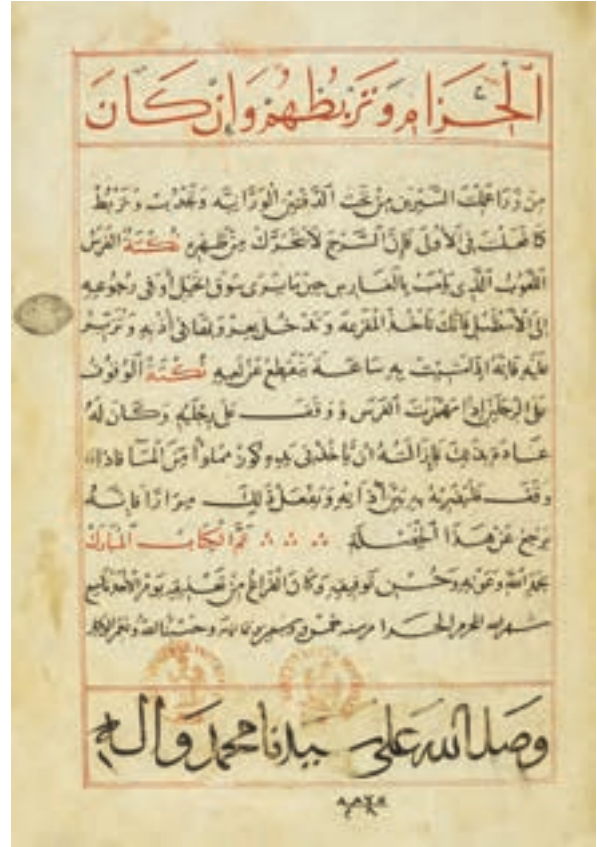 الحزام وتربطهم وان كان
من وراء تحت الدفتين الورانيه وتجذب وتربط
كما فعلت في الاولى فان السرج لا يتحرك من ظهره نكتة الفرس
اللعوب الذي يلعب بالفارس حين ما يسوق الخيل أو في رجوعه
إلى الاسطبل فانك تاخذ المقرعه وتدخل في أذنه
عليه فانه ساعة ينقطع عن لعبه نكتة الوقوف
على الرجلين إذا الفرس ووقف على رجليه وكان له
عادة بذلك فان ان ياخذ في يده كوز مملوا من الماء فاذا
وقف فليضربه بين أذانه ويفعل ذلك مرارا فانه
يرجع عن هذا الخصله تم الكتاب المبارك
بحمد الله وعونه وحسن توفيقه وكان الفراغ من تعليقه يوم الاحد تاسع
شهر الله المحرم الحرام سنه خمس وحسبنا الله ونعم الوكيل
وصل الله على سيدنا محمد وال